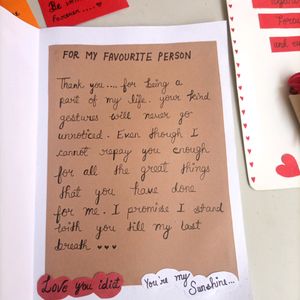 Be
FOR MY FAVOURITE PERSON
Thank you.... for being a
part of my life. your kind
gestures will never go
unnoticed. Even though I
cannot repay you enough
for all the great things
that you have done
for me. I promise I stand
with you till my last
breath ♥♥♥
Love you idiot
You're my
Sunshine...
and